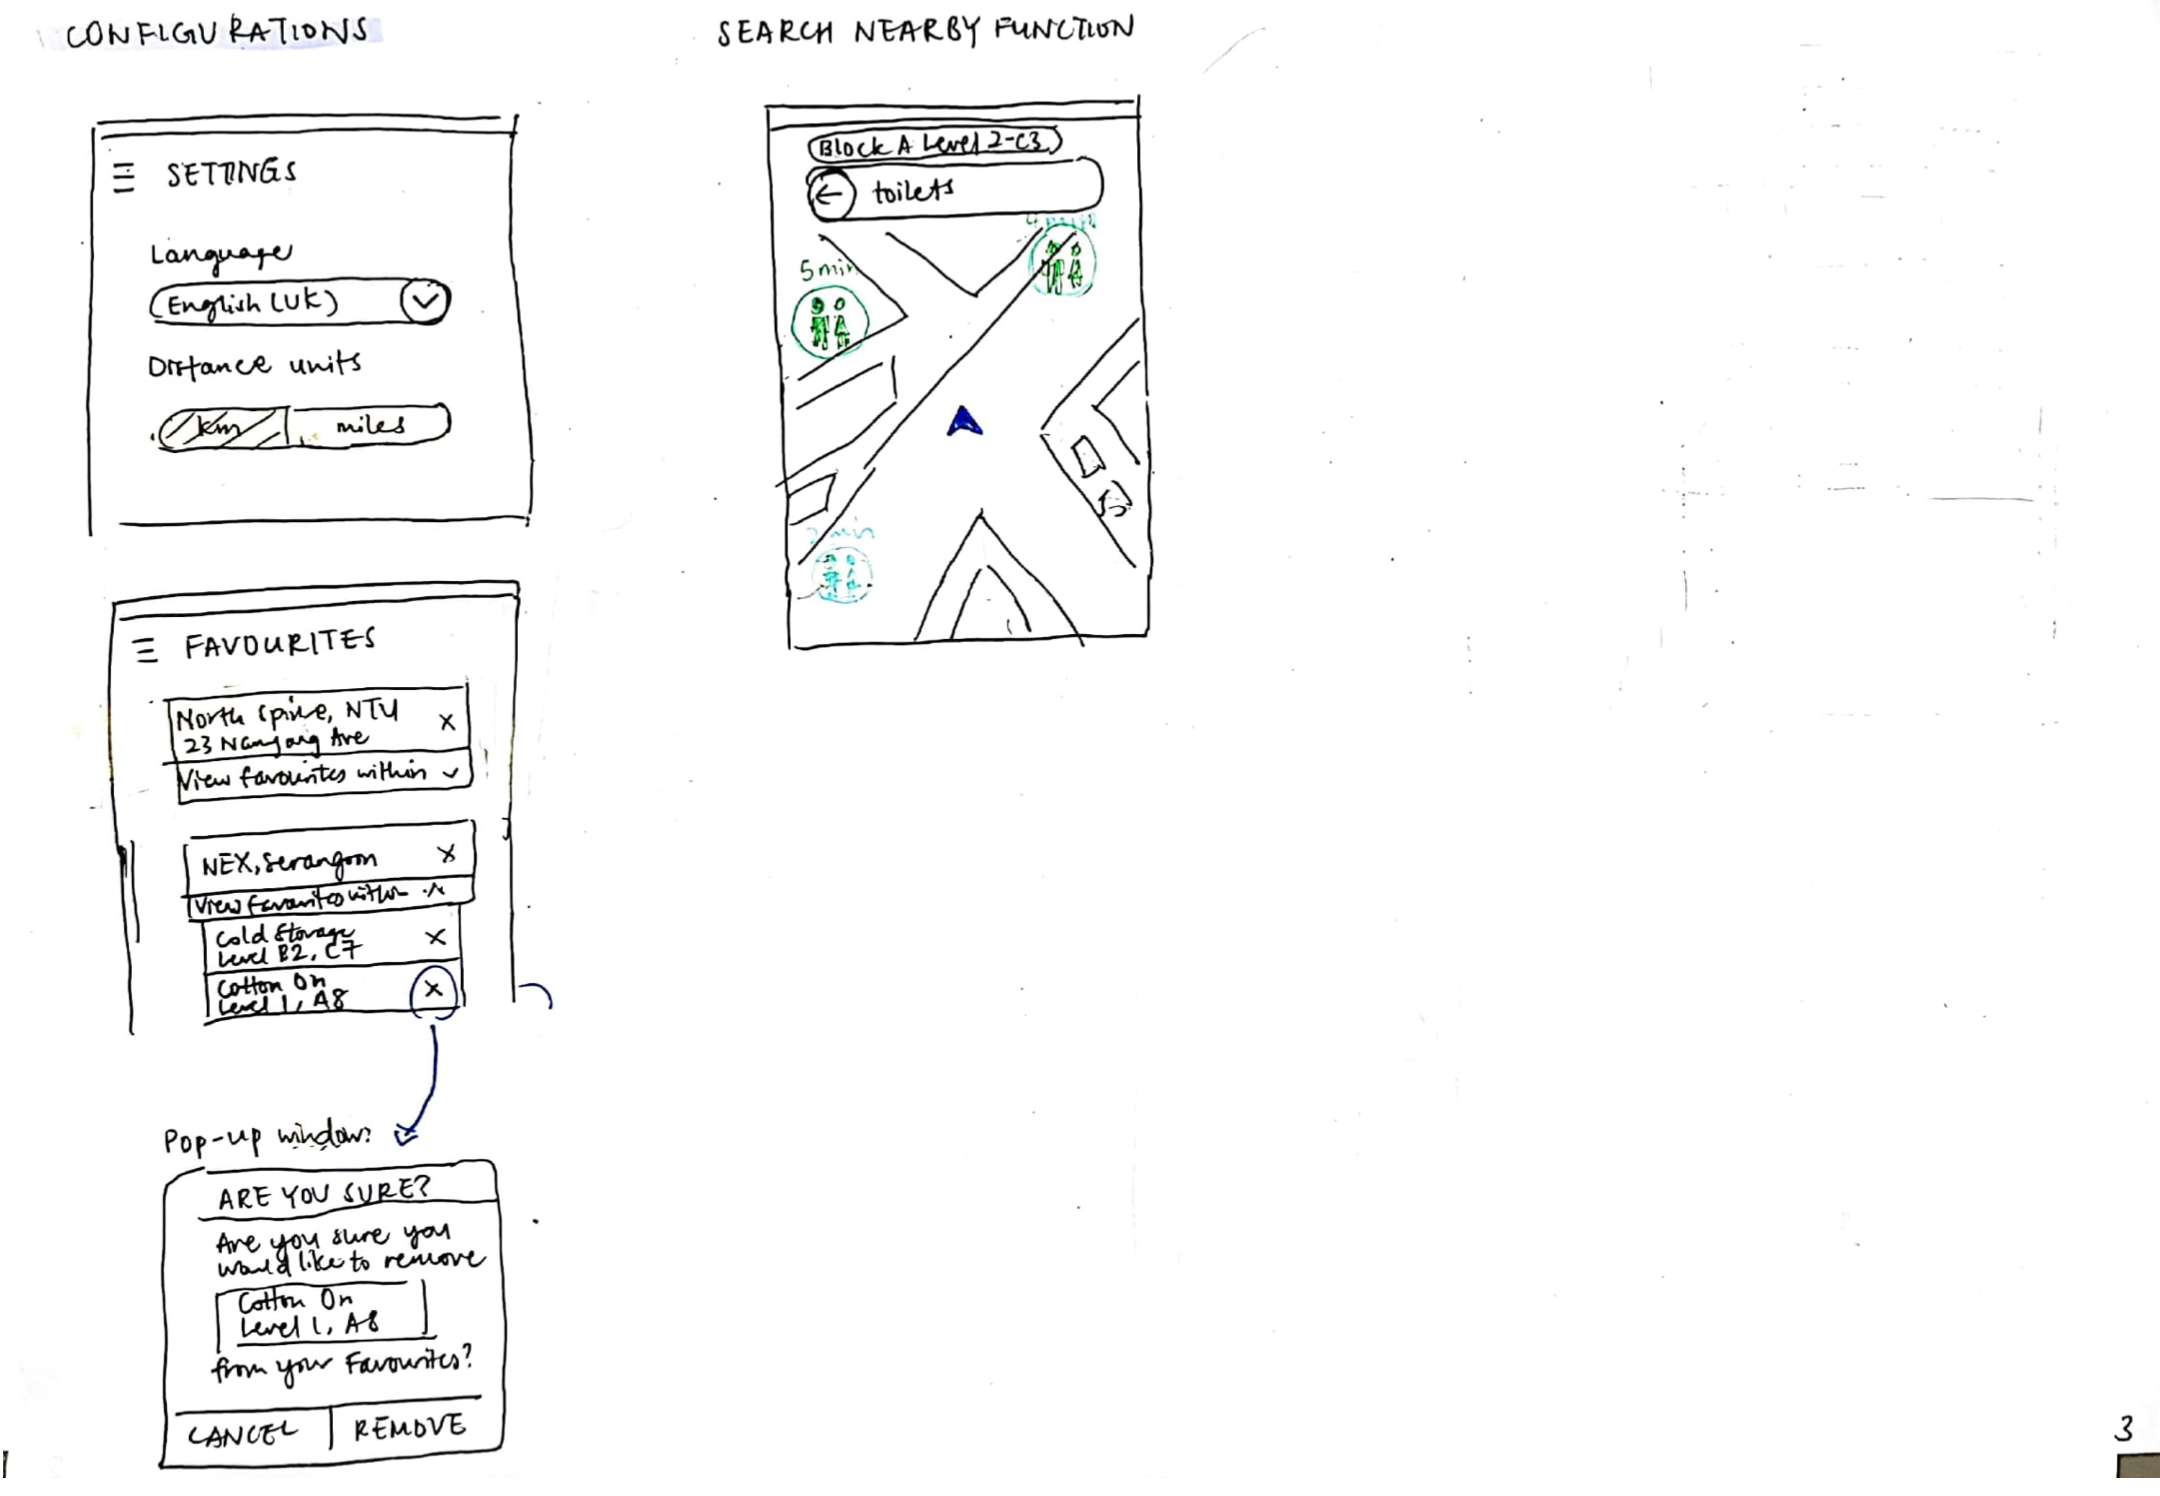 CONFIGURATIONS
SETTINGS
Language
English (UK)
Distance units
km
miles
FAVOURITES
North Spine, NTU
23 Nanyang Ave
X
View favourites within
NEX, Serangoon
X
View favourites within
Cold Storage
Level B2, C7
X
Cotton On
Level 1, A8
X
Pop-up window:
ARE YOU SURE?
Are you sure you
would like to remove
Cotton On
Level 1, A8
from your Favourites?
CANCEL
REMOVE
SEARCH NEARBY FUNCTION
Block A Level 2-C3
toilets
5 min
min
min
3